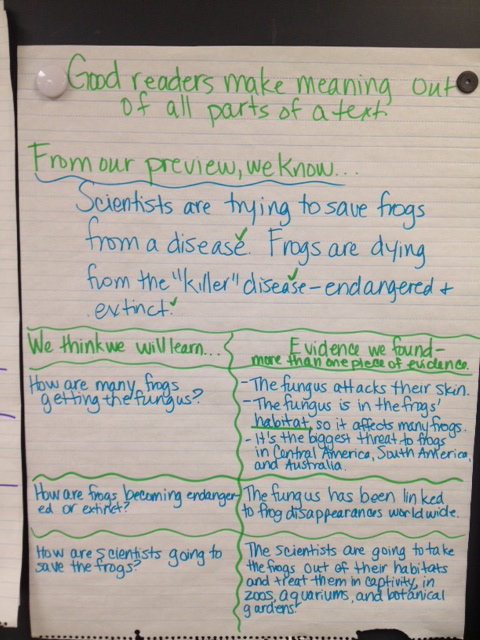 Good readers make meaning out
of all parts of a text
From our preview, we know...
Scientists are trying to save frogs
from a disease. Frogs are dying
from the "killer" disease - endangered +
extinct.
We think we will learn...
How are many frogs
getting the fungus?
How are frogs becoming endanger-
ed or extinct?
How are scientists going to
save the frogs?
Evidence we found-
more than one piece of evidence.
- The fungus attacks their skin.
- The fungus is in the frogs'
habitat, so it affects many frogs.
- It's the biggest threat to frogs
in Central America, South America,
and Australia.
The fungus has been linked
to frog disappearances worldwide.
The scientists are going to take
the frogs out of their habitats
and treat them in captivity, in
zoos, aquariums, and botanical
gardens.